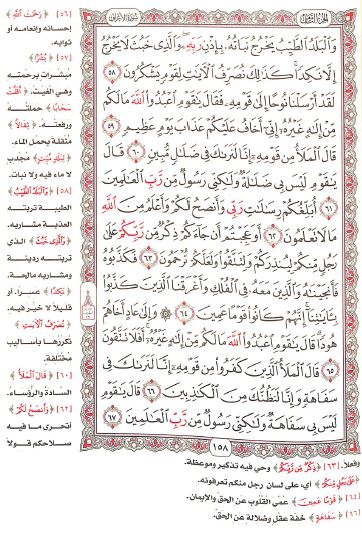 الجزء الثامن
سورة الأعراف
وَالْبَلَدُ الطَّيِّبُ يَخْرُجُ نَبَاتُهُ بِإِذْنِ رَبِّهِ وَالَّذِي خَبُثَ لَا يَخْرُجُ
إِلَّا نَكِدًا كَذَٰلِكَ نُصَرِّفُ الْآيَاتِ لِقَوْمٍ يَشْكُرُونَ ٥٨
لَقَدْ أَرْسَلْنَا نُوحًا إِلَىٰ قَوْمِهِ فَقَالَ يَا قَوْمِ اعْبُدُوا اللَّهَ مَا لَكُم
مِّنْ إِلَٰهٍ غَيْرُهُ إِنِّي أَخَافُ عَلَيْكُمْ عَذَابَ يَوْمٍ عَظِيمٍ ٥٩
قَالَ الْمَلَأُ مِن قَوْمِهِ إِنَّا لَنَرَاكَ فِي ضَلَالٍ مُّبِينٍ ٦٠ قَالَ
يَا قَوْمِ لَيْسَ بِي ضَلَالَةٌ وَلَٰكِنِّي رَسُولٌ مِّن رَّبِّ الْعَالَمِينَ
٦١ أُبَلِّغُكُمْ رِسَالَاتِ رَبِّي وَأَنصَحُ لَكُمْ وَأَعْلَمُ مِنَ اللَّهِ
مَا لَا تَعْلَمُونَ ٦٢ أَوَعَجِبْتُمْ أَن جَاءَكُمْ ذِكْرٌ مِّن رَّبِّكُمْ عَلَىٰ
رَجُلٍ مِّنكُمْ لِيُنذِرَكُمْ وَلِتَتَّقُوا وَلَعَلَّكُمْ تُرْحَمُونَ ٦٣ فَكَذَّبُوهُ
فَأَنجَيْنَاهُ وَالَّذِينَ مَعَهُ فِي الْفُلْكِ وَأَغْرَقْنَا الَّذِينَ كَذَّبُوا
بِآيَاتِنَا إِنَّهُمْ كَانُوا قَوْمًا عَمِينَ ٦٤ وَإِلَىٰ عَادٍ أَخَاهُمْ
هُودًا قَالَ يَا قَوْمِ اعْبُدُوا اللَّهَ مَا لَكُم مِّنْ إِلَٰهٍ غَيْرُهُ أَفَلَا تَتَّقُونَ
٦٥ قَالَ الْمَلَأُ الَّذِينَ كَفَرُوا مِن قَوْمِهِ إِنَّا لَنَرَاكَ فِي
سَفَاهَةٍ وَإِنَّا لَنَظُنُّكَ مِنَ الْكَاذِبِينَ ٦٦ قَالَ يَا قَوْمِ
لَيْسَ بِي سَفَاهَةٌ وَلَٰكِنِّي رَسُولٌ مِّن رَّبِّ الْعَالَمِينَ ٦٧
١٥٨
[٥٦] ﴿رَحْمَتَ اللَّهِ﴾
إحسانه وإنعامه أو
ثوابه.
[٥٧] ﴿بُشْرًا﴾
مبشرات برحمته
وهي الغيث. ﴿أَقَلَّتْ
سَحَابًا﴾ حملته
ورفعته. ﴿ثِقَالًا﴾
مثقلة بحمل الماء.
﴿لِبَلَدٍ مَّيِّتٍ﴾ مجدب
لا ماء فيه ولا نبات.
[٥٨] ﴿وَالْبَلَدُ الطَّيِّبُ﴾
الطيبة تربته
العذبة مشاربه.
﴿وَالَّذِي خَبُثَ﴾ الذي
تربته رديئة
ومشاربه مالحة.
﴿نَكِدًا﴾ عسرًا، أو
قليلًا لا خير فيه.
﴿نُصَرِّفُ الْآيَاتِ﴾
نكررها بأساليب
مختلفة.
[٦٠] ﴿قَالَ الْمَلَأُ﴾
السادة والرؤساء.
[٦٢] ﴿وَأَنصَحُ لَكُمْ﴾
أتحرى ما فيه
صلاحكم قولًا
وفعلًا. [٦٣] ﴿ذِكْرٌ مِّن رَّبِّكُمْ﴾ وحي فيه تذكير وموعظة.
﴿عَلَىٰ رَجُلٍ مِّنكُمْ﴾ أي، على لسان رجل منكم تعرفونه.
[٦٤] ﴿قَوْمًا عَمِينَ﴾ عمي القلوب عن الحق والإيمان.
[٦٦] ﴿سَفَاهَةٍ﴾ خفة عقل وضلالة عن الحق.